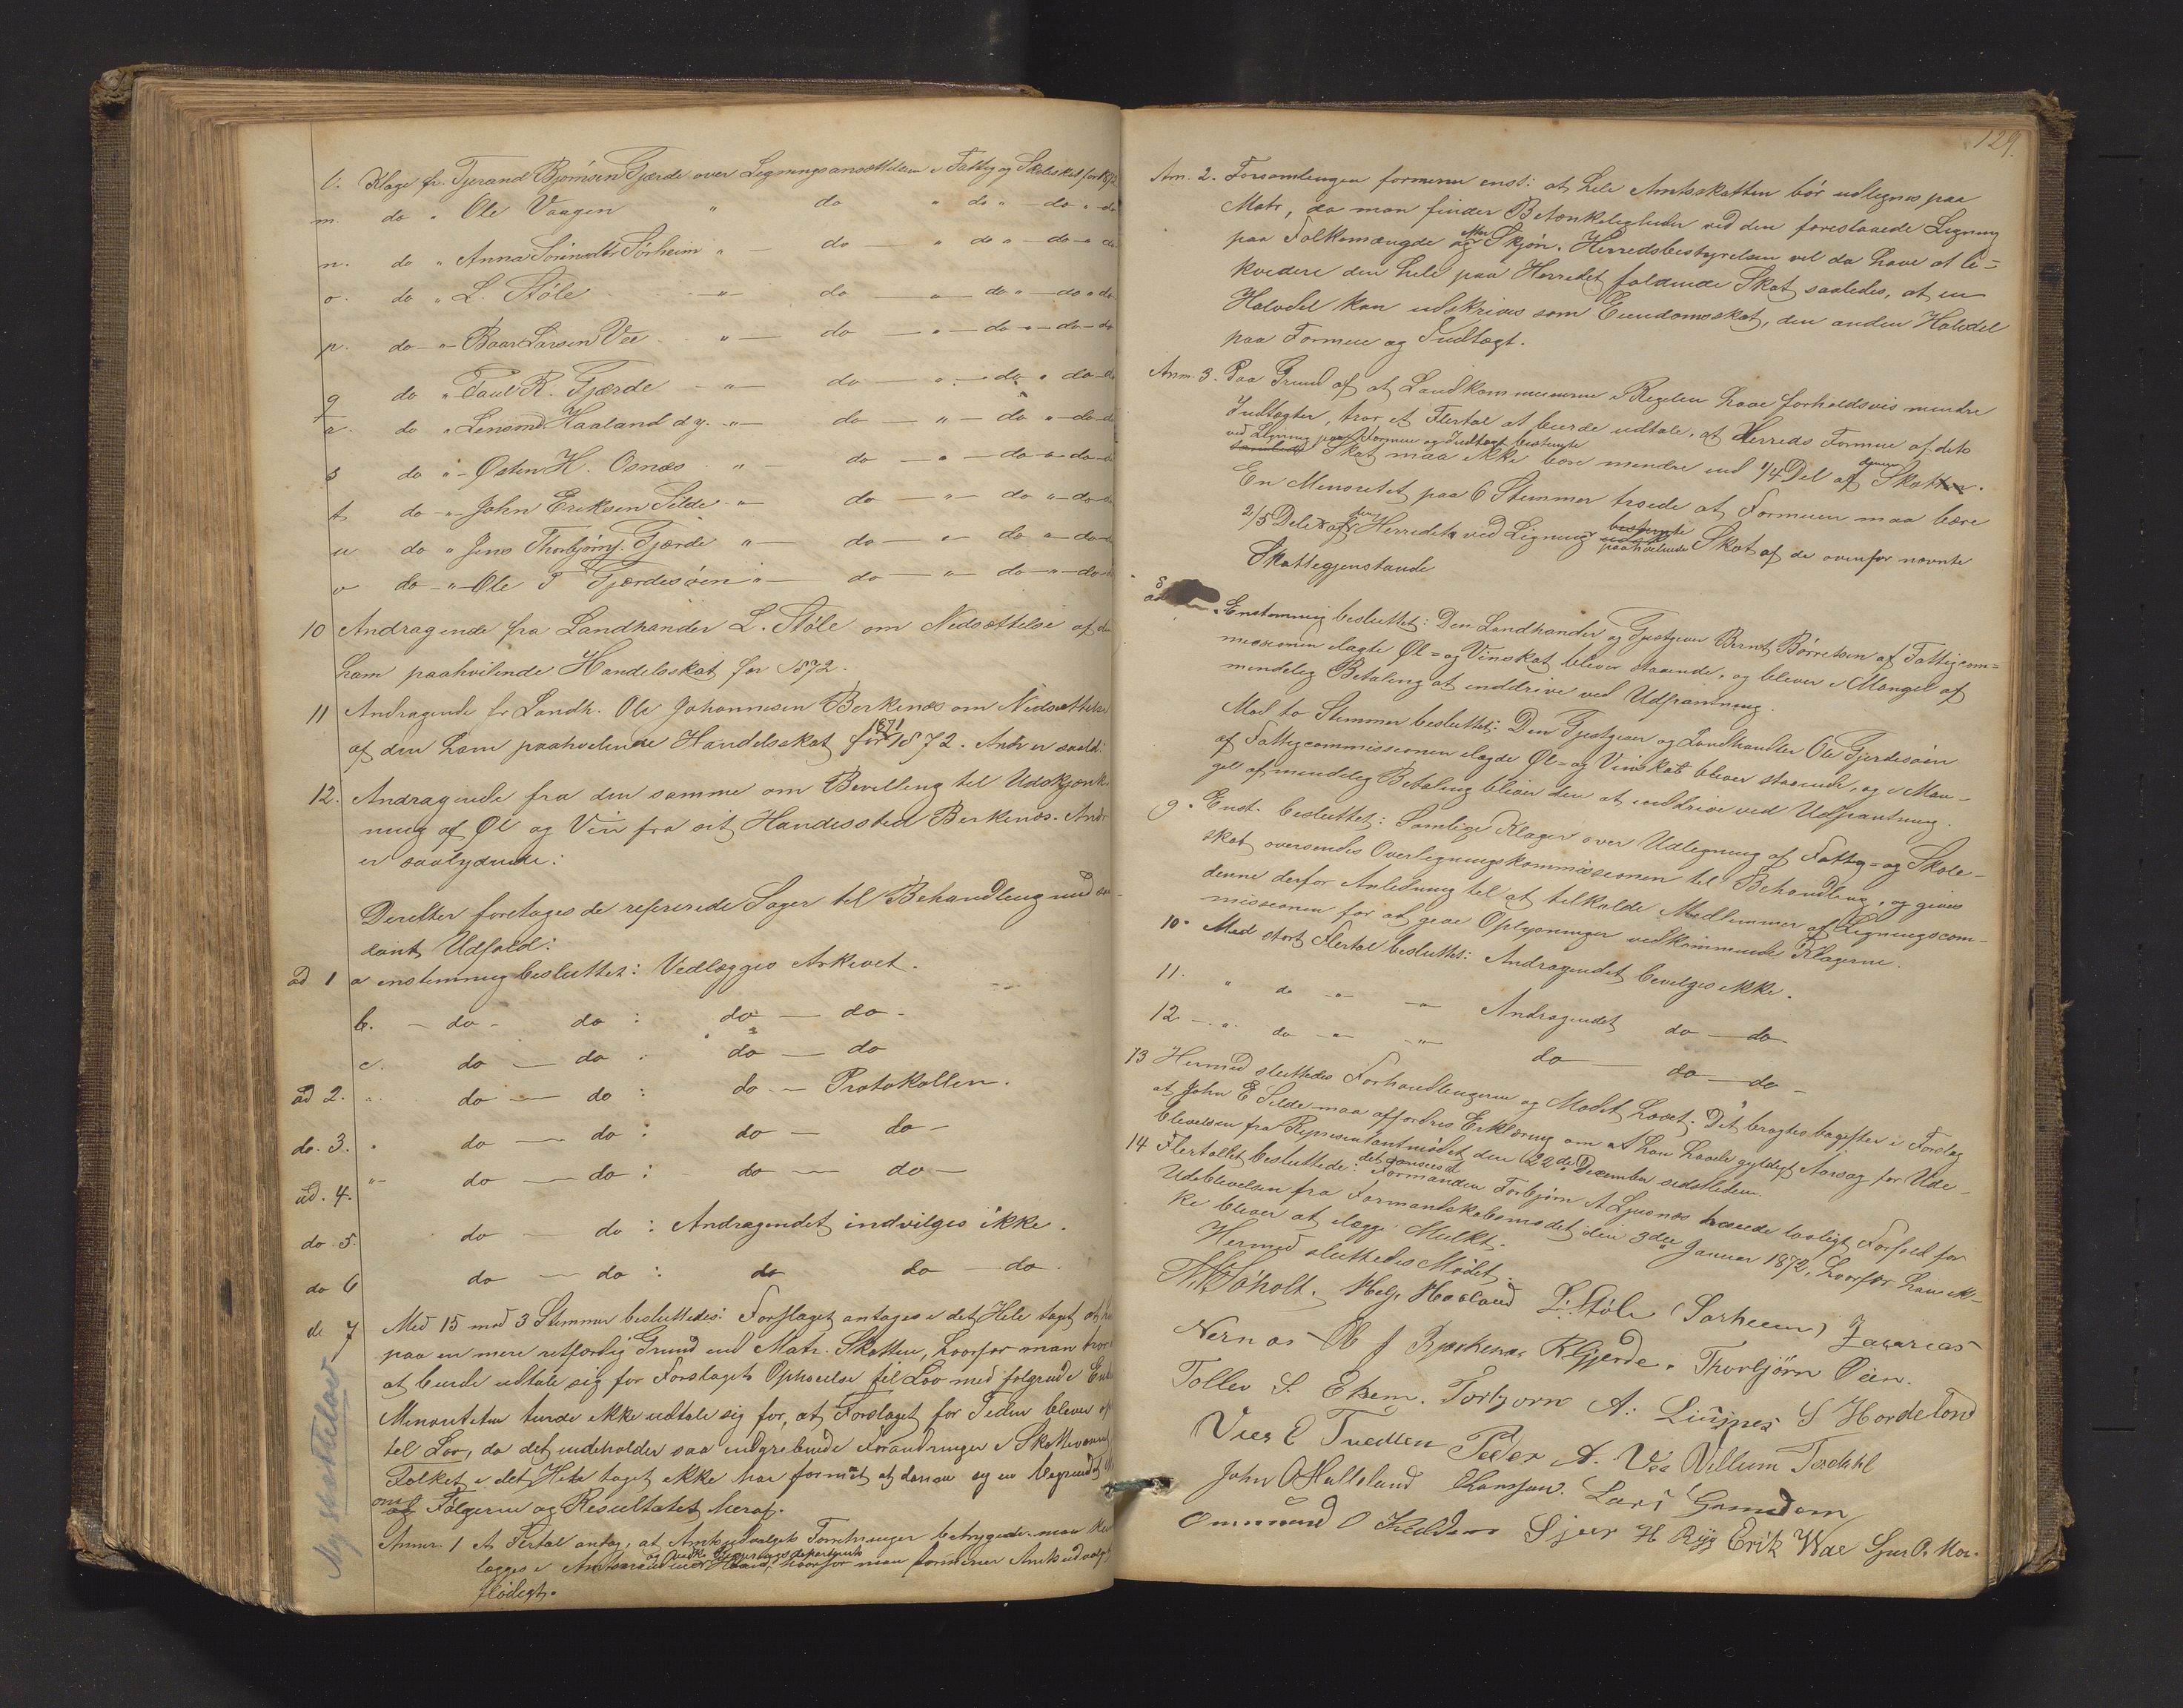 l. Klage fr. Tjerand Bjørnsen Gjærde over Ligningsansættelsen i Fattig og Skoleskat for 1872
m. do " Ole Vaagen " do " do " - do " - do
n. do " Anna Sørensdtr Sørheim " - do - " do " - do - " do
o. do " L. Støle - " - do - " - do " - do " do
p. do - " - Baar Larsen Vee - " - do - " - do - " - do - do
q do " Paul R. Gjærde - " - do - " - do " do - do
r. do " Lensmd. Haaland d.y. - " - do - " - do " - do - do
s do " - Østen H. Osnæs " - do - " - do - " - do - do
t do - " - John Eriksen Silde - " - do - " - do " - do - do
u do " Jens Thorbjørns. Gjærde " - do - " - do " - do - do
v do - " - Ole P Gjærdesøien " - do - " - do - " - do - do
10 Andragende fra Landhandler L. Støle om Nedsættelse af den
ham paahvilende Handelsskat for 1872.
11 Andragende fr Landh. Ole Johannesen Berkenæs om Nedsættelse
af den ham paahvilende Handelsskat for 1871 1872. Andr er saald:
12. Andragende fra den samme om Bevilling til Udskjænk-
ning af Øl og Vin fra sit Handelssted Berkenæs. Andr
er saalydende:
Derefter foretages de refererede Sager til Behandling med saa-
dant Udfald:
ad 1 a enstemmig besluttet: Vedlægges Arkivet.
b. - do - do : do - do -
c. do - do : do - do
ad 2. " do - do : do - Protokollen.
do. 3. " do - do : do - do -
ad. 4. " - do - do : do - do -
do 5. do - do : Andragendet indvilges ikke.
do 6 do - do : do do - do.
do 7 Med 15 mod 3 Stemmer besluttedes: Forslaget antages i det Hele taget at
paa en mere retfærdig Grund end Matr. Skatten, hvorfor man tror
at burde udtale sig for Forslagets Ophøielse til Lov med følgende
Minoriteten turde ikke udtale sig for, at Forslaget for Tiden bliver
til Lov, da det indeholder saa indgribende Forandringer i Skattevæsenet
Folket i det Hele taget ikke har formaaet at danne sig en begrundet
om Følgerne og Resultatet heraf.
Anmr. 1 Et Flertal antog, at Amtsudvalgets Forretninger betryggende maa kun
og vedk. Regjeringsdepartement
lægges i Amtmandens Haand, hvorfor man formener Amtsudvalg
nødigt.
Ny skattelov
129.
Am. 2. Forsamlingen formener enst: at hele Amtsskatten bør udlignes paa
Matr, da man finder Betænkeligheder ved den foreslaaede Ligning
paa Folkemængde og efter Skjøn. Herredsbestyrelsen vil da have at li-
kvidere den hele paa Herredet faldende Skat saaledes, at en
Halvdel kan udskrives som Eiendomsskat, den anden Halvdel
paa Formue og Indtægt.
Anm. 3. Paa Grund af at Landkommunerne i Regelen have forholdsvis mindre
Indtægter, tror et Flertal at burde udtale, at Herreds Formue af dets
ved Ligning paa Formue og Indtægt bestemte
samlede Skat maa ikke bære mindre end 1/4 Del af denne Skatten.
En Minoritet paa 6 Stemmer troede at Formuen maa bære
2/5 Dele af den Herredets ved Ligning bestemte paahvilende Skat af de ovenfor nævnte
Skattegjenstande
8 ad Enstemmig besluttet: Den Landhandler og Gjæstgiver Bernt Børretsen af Fattigcom=
missionen ilagte Øl= og Vinskat bliver staaende, og bliver i Mangel af
mindelig Betaling at inddrive ved Udpantning.
Mod to Stemmer besluttet: Den Gjæstgiver og Landhandler Ole Gjerdesøien
af Fattigcommissionen ilagde Øl= og Vinskat bliver staaende, og i Man-
gel af mindelig Betaling bliver den at inddrive ved Udpantning.
9. Enst. besluttet: Samtlige Klager over Udligning af Fattig= og Skole-
skat oversendes Overligningskommissionen til Behandling, og gives
denne derfor Anledning til at tilkalde Medlemmer af Ligningscom-
missionen for at give Oplysninger vedkommende Klagerne.
10. Med stort Flertal besluttet: Andragendet bevilges ikke.
11. " do - " - " - Andragendet do - do.
12 - " do - " - " - do - do - do -
13 Hermed sluttedes Forhandlingerne og Mødet hævet. Det bragtes bagefter i Forslag
at John E Silde maa affordres Erklæring om at han havde gyldigt Aarsag for Ude-
blivelsen fra Representantmødet den 22de December sidstleden.
14 Flertallet besluttede: det ansees at Formanden Torbjørn A Ljusnæs havde lovligt Forfald for
Udeblivelsen fra Formandskabsmødet den 3die Januar 1872, hvorfor han ik-
ke bliver at ilægge Mulkt.
Hermed sluttedes Mødet.
Søholt. Helje Haaland L. Støle (Sørheim) Zacarias
Nernæs O J Bjerkenæs R Gjerde. Thorbjørn Øien.
Tollev S. Etnem. Torbjørn A. Liusnes S Hordeland
Vier E Tvedten Peder A. Vea Villum Tesdahl
John O Hulleland E Hansson. Lars Grindem
Ommund O Sjur H Ryg Erik Vae Sjur O. Mo.